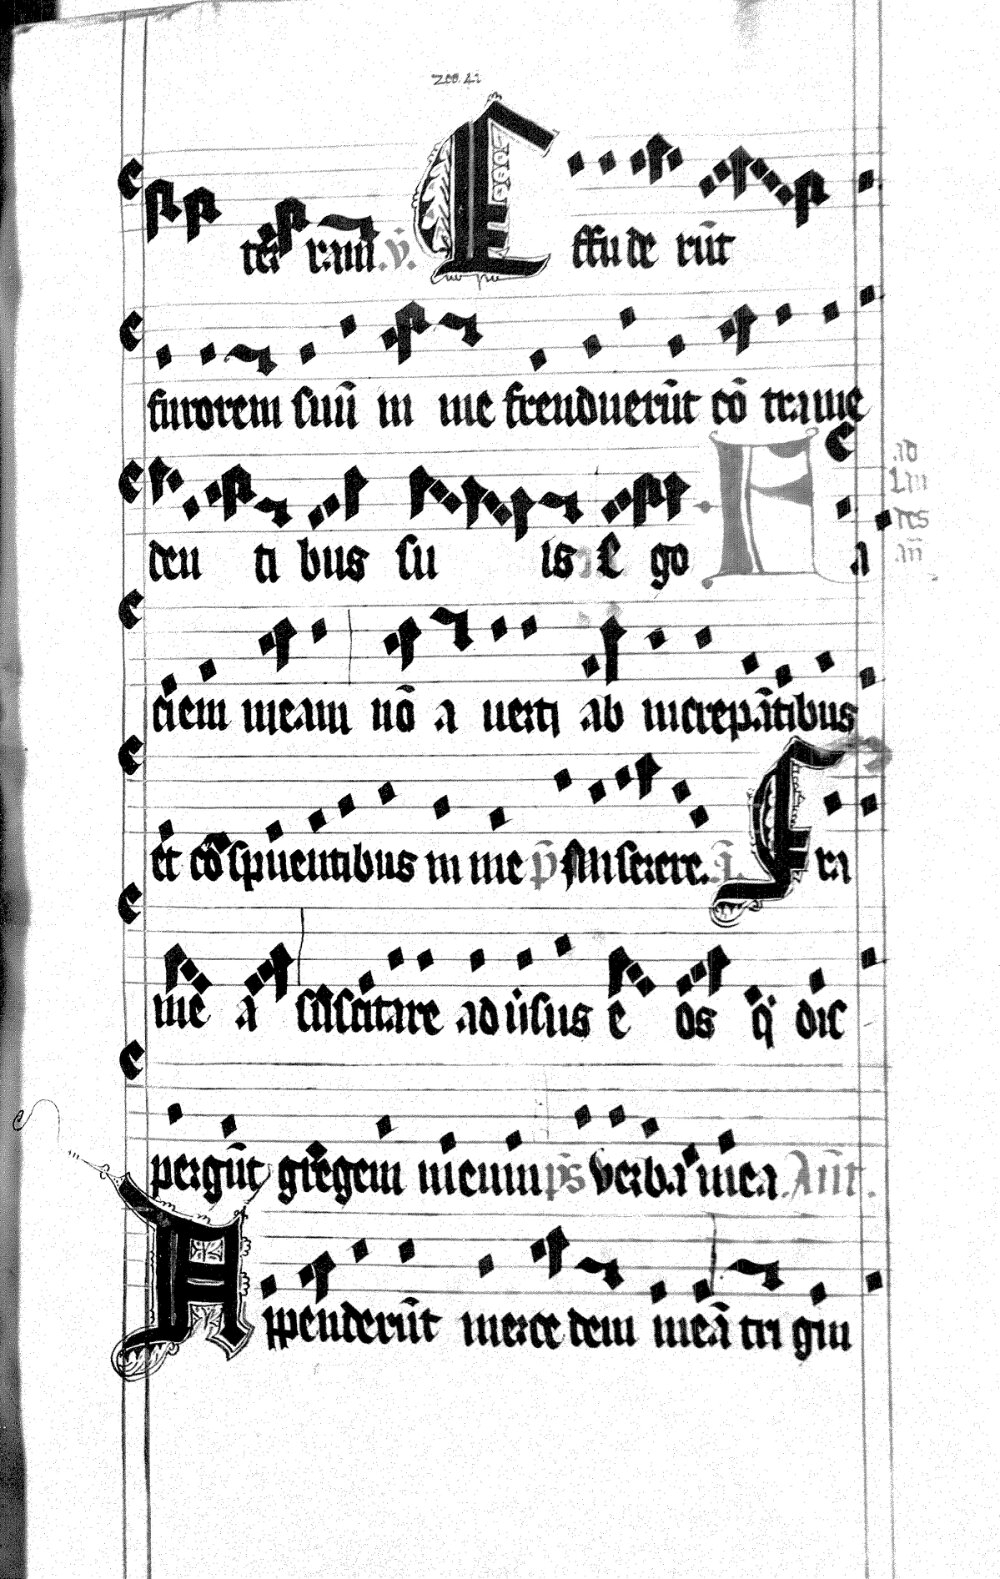 ter ram. v̄. Effude rūt
furorem suū in me frenduerūt cō tra me
den ti bus su is Ego Fa
ad
Lau
des
añ
ciem meam nō a uerti ab increpātibus
et cōspuentibus in me p̄s Miserere. ā. Fra
me a suscitare aduersus e os q̄ dis
pergūt gregem meum p̄s Verba mea. Añt.
Appenderūt mercedem meā tri gin